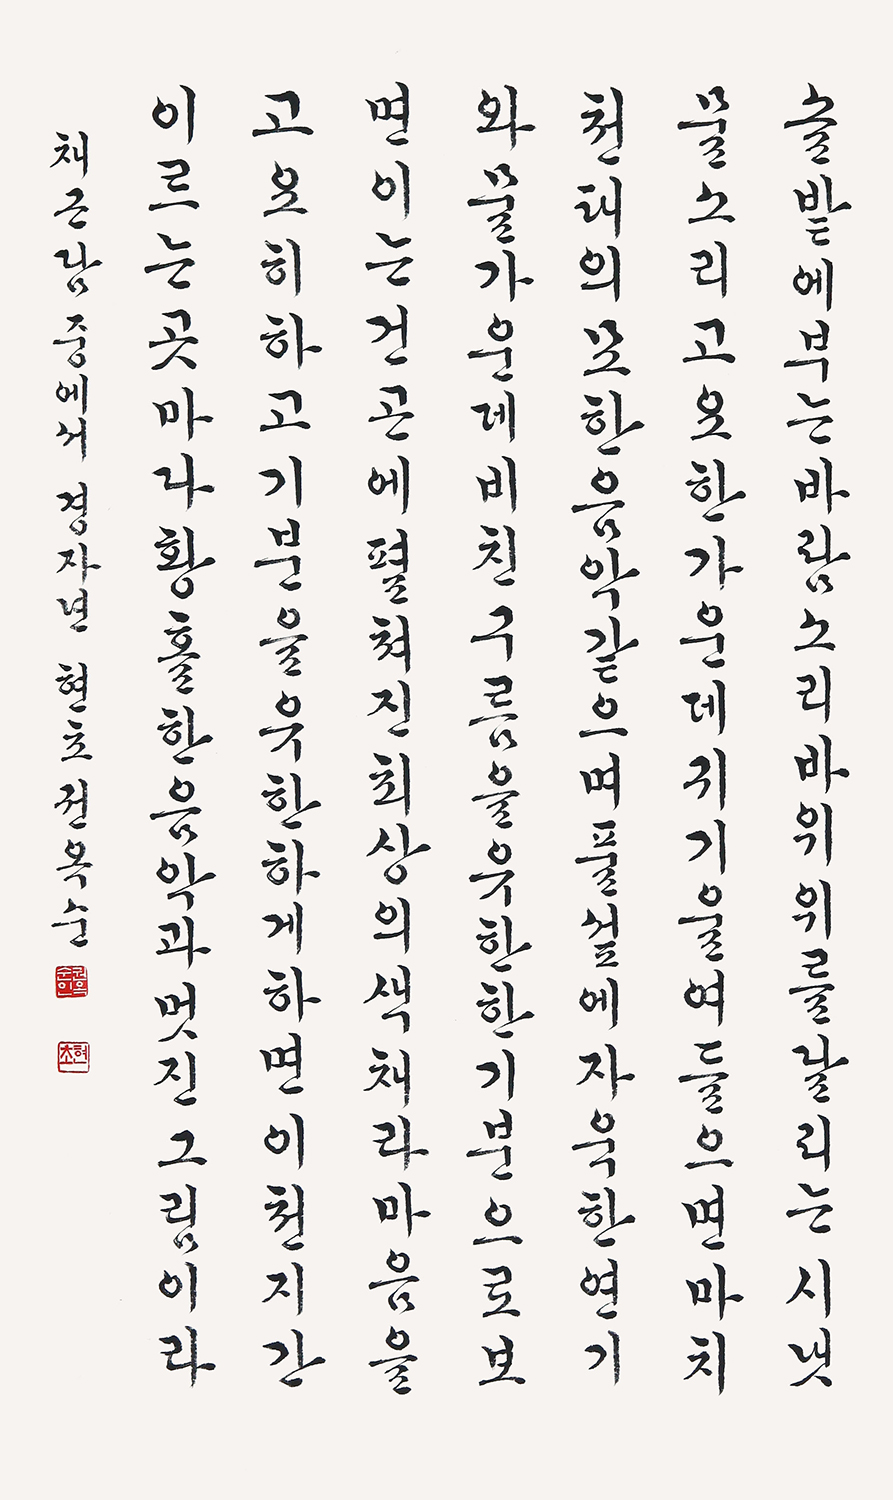 솔밭에부는바람소리바위위를달리는시냇
물소리고요한가운데귀기울여들으면마치
천태의묘한음악같으며풀섶에자욱한연기
와물가운데비친구름을유한한기분으로보
면이는건곤에펼쳐진최상의색채라마음을
고요히하고기분을유한하게하면이천지간
이르는곳마다황홀한음악과멋진그림이라
채근담중에서 경자년 현초권옥순
권옥순인
현초